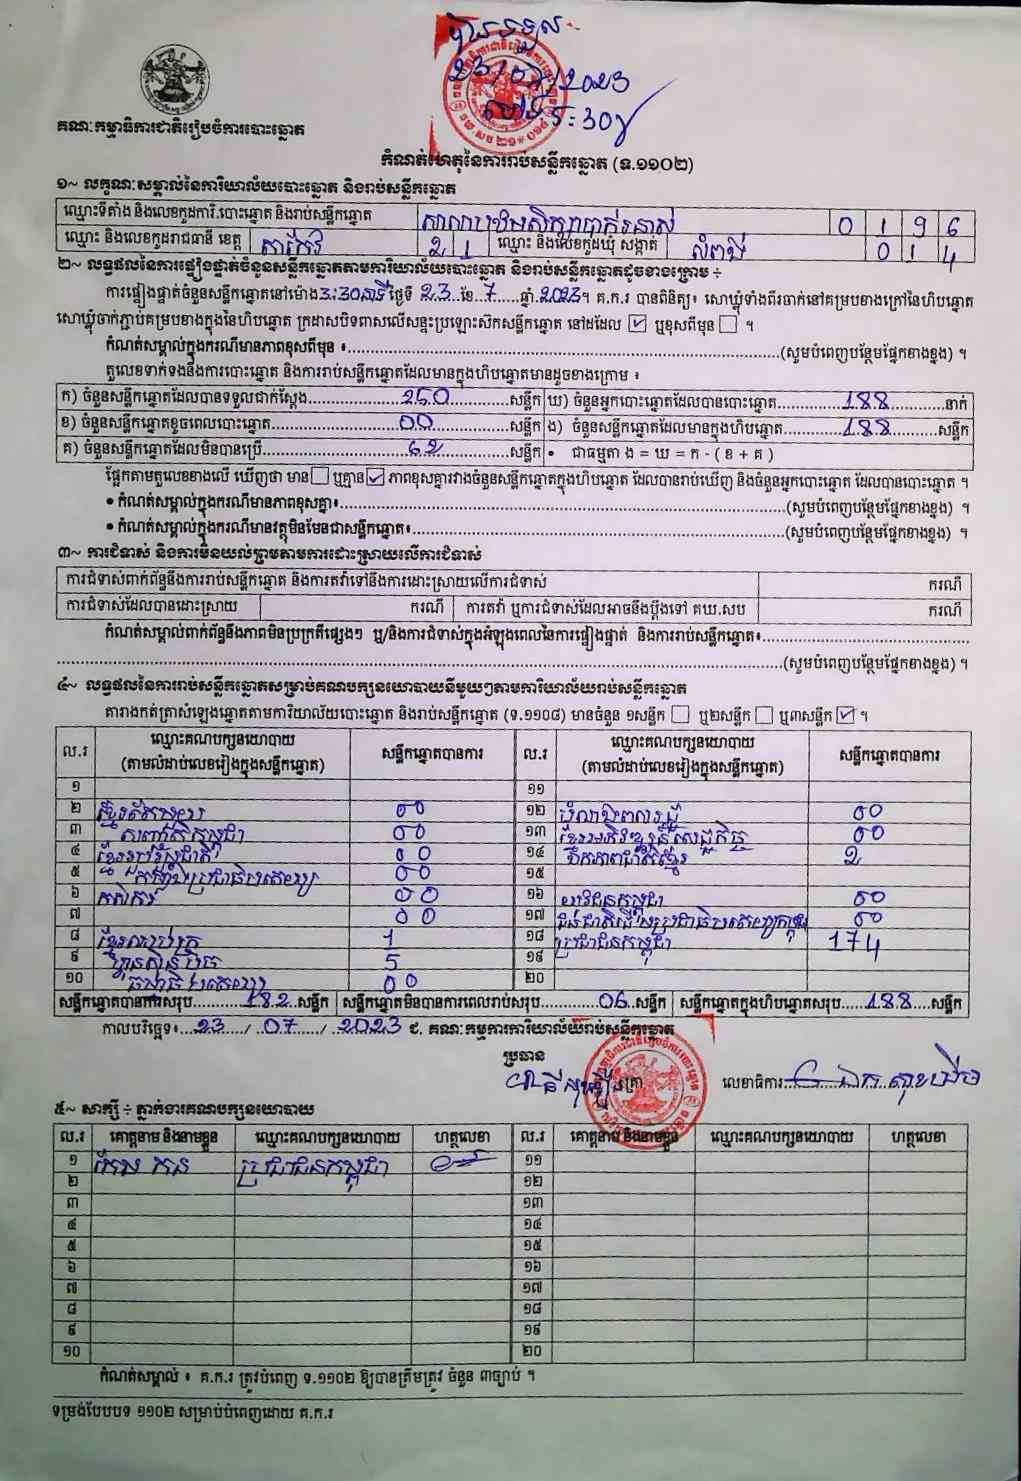 បានទទួល
23/07/2023
ម៉ោង 5:30
គណៈកម្មាធិការជាតិរៀបចំការបោះឆ្នោត
កំណត់ហេតុនៃការរាប់សន្លឹកឆ្នោត (ទ.១១០២)
១~ លក្ខណៈសម្គាល់នៃការិយាល័យបោះឆ្នោត និងរាប់សន្លឹកឆ្នោត
ឈ្មោះទីតាំង និងលេខកូដការិ.បោះឆ្នោត និងរាប់សន្លឹកឆ្នោត 0 1 9 6
ឈ្មោះ និងលេខកូដរាជធានី ខេត្ត តាកែវ 2 1 ឈ្មោះ និងលេខកូដឃុំ សង្កាត់ លំពង់ 0 1 4
២~ លទ្ធផលនៃការផ្ទៀងផ្ទាត់ចំនួនសន្លឹកឆ្នោតតាមការិយាល័យបោះឆ្នោត និងរាប់សន្លឹកឆ្នោតដូចខាងក្រោម ÷
ការផ្ទៀងផ្ទាត់ចំនួនសន្លឹកឆ្នោតនៅម៉ោង 3:30នាទី ថ្ងៃទី 23 ខែ 7 ឆ្នាំ 2023។ គ.ក.រ បានពិនិត្យ៖ សោឃ្លុំទាំងពីរចាក់នៅគម្របខាងក្រៅនៃហិបឆ្នោត
សោឃ្លុំចាក់ភ្ជាប់គម្របខាងក្នុងនៃហិបឆ្នោត ក្រដាសបិទពាសលើសន្ទះប្រឡោះស៊កសន្លឹកឆ្នោត នៅដដែល ☑ ឬខុសពីមុន ☐ ។
កំណត់សម្គាល់ក្នុងករណីមានភាពខុសពីមុន ៖...(សូមបំពេញបន្ថែមផ្នែកខាងខ្នង) ។
តួលេខទាក់ទងនឹងការបោះឆ្នោត និងការរាប់សន្លឹកឆ្នោតដែលមានក្នុងហិបឆ្នោតមានដូចខាងក្រោម ៖
ក) ចំនួនសន្លឹកឆ្នោតដែលបានទទួលជាក់ស្តែង...250...សន្លឹក ឃ) ចំនួនអ្នកបោះឆ្នោតដែលបានបោះឆ្នោត...188...នាក់
ខ) ចំនួនសន្លឹកឆ្នោតខូចពេលបោះឆ្នោត...00...សន្លឹក ង) ចំនួនសន្លឹកឆ្នោតដែលមានក្នុងហិបឆ្នោត...188...សន្លឹក
គ) ចំនួនសន្លឹកឆ្នោតដែលមិនបានប្រើ...62...សន្លឹក • ជាធម្មតា ង = ឃ = ក - ( ខ + គ )
ផ្អែកតាមតួលេខខាងលើ ឃើញថា មាន ☐ ឬគ្មាន ☑ ភាពខុសគ្នារវាងចំនួនសន្លឹកឆ្នោតក្នុងហិបឆ្នោត ដែលបានរាប់ឃើញ និងចំនួនអ្នកបោះឆ្នោត ដែលបានបោះឆ្នោត ។
• កំណត់សម្គាល់ក្នុងករណីមានភាពខុសគ្នា៖...(សូមបំពេញបន្ថែមផ្នែកខាងខ្នង) ។
• កំណត់សម្គាល់ក្នុងករណីមានវត្ថុមិនមែនជាសន្លឹកឆ្នោត៖...(សូមបំពេញបន្ថែមផ្នែកខាងខ្នង) ។
៣~ ការជំទាស់ និងការមិនយល់ព្រមតាមការដោះស្រាយលើការជំទាស់
ការជំទាស់ពាក់ព័ន្ធនឹងការរាប់សន្លឹកឆ្នោត និងការតវ៉ាទៅនឹងការដោះស្រាយលើការជំទាស់ ករណី
ការជំទាស់ដែលបានដោះស្រាយ ករណី ការតវ៉ា ឬការជំទាស់ដែលអាចនឹងប្តឹងទៅ គឃ.សប ករណី
កំណត់សម្គាល់ពាក់ព័ន្ធនឹងភាពមិនប្រក្រតីផ្សេងៗ ឬ/និងការជំទាស់ក្នុងអំឡុងពេលនៃការផ្ទៀងផ្ទាត់ និងការរាប់សន្លឹកឆ្នោត៖...
...(សូមបំពេញបន្ថែមផ្នែកខាងខ្នង) ។
៤~ លទ្ធផលនៃការរាប់សន្លឹកឆ្នោតសម្រាប់គណបក្សនយោបាយនីមួយៗតាមការិយាល័យរាប់សន្លឹកឆ្នោត
តារាងកត់ត្រាសំឡេងឆ្នោតតាមការិយាល័យបោះឆ្នោត និងរាប់សន្លឹកឆ្នោត (ទ.១១០៨) មានចំនួន ១សន្លឹក ☐ ឬ២សន្លឹក ☐ ឬ៣សន្លឹក ☑ ។
ល.រ ឈ្មោះគណបក្សនយោបាយ (តាមលំដាប់លេខរៀងក្នុងសន្លឹកឆ្នោត) សន្លឹកឆ្នោតបានការ ល.រ ឈ្មោះគណបក្សនយោបាយ (តាមលំដាប់លេខរៀងក្នុងសន្លឹកឆ្នោត) សន្លឹកឆ្នោតបានការ
១ ១១
២ 00 ១២ 00
៣ 00 ១៣ ខ្មែរអភិវឌ្ឍន៍សេដ្ឋកិច្ច 00
៤ ខ្មែររួបរួមជាតិ 00 ១៤ ឯកភាពជាតិខ្មែរ 2
៥ 00 ១៥
៦ កសិករ 00 ១៦ យុវជនកម្ពុជា 00
៧ 00 ១៧ 00
៨ ខ្មែរឈប់ក្រ 1 ១៨ ប្រជាជនកម្ពុជា 174
៩ ហ៊្វុនស៊ិនប៉ិច 5 ១៩
១០ 00 ២០
សន្លឹកឆ្នោតបានការសរុប...182...សន្លឹក សន្លឹកឆ្នោតមិនបានការពេលរាប់សរុប...06...សន្លឹក សន្លឹកឆ្នោតក្នុងហិបឆ្នោតសរុប...188...សន្លឹក
កាលបរិច្ឆេទ៖ 23 / 07 / 2023 ជ. គណៈកម្មការការិយាល័យរាប់សន្លឹកឆ្នោត
ប្រធាន
លេខាធិការ
៥~ សាក្សី ÷ ភ្នាក់ងារគណបក្សនយោបាយ
ល.រ គោត្តនាម និងនាមខ្លួន ឈ្មោះគណបក្សនយោបាយ ហត្ថលេខា ល.រ គោត្តនាម និងនាមខ្លួន ឈ្មោះគណបក្សនយោបាយ ហត្ថលេខា
១ ប្រជាជនកម្ពុជា ១១
២ ១២
៣ ១៣
៤ ១៤
៥ ១៥
៦ ១៦
៧ ១៧
៨ ១៨
៩ ១៩
១០ ២០
កំណត់សម្គាល់ ៖ គ.ក.រ ត្រូវបំពេញ ទ.១១០២ ឱ្យបានត្រឹមត្រូវ ចំនួន ៣ច្បាប់ ។
ទម្រង់បែបបទ ១១០២ សម្រាប់បំពេញដោយ គ.ក.រ